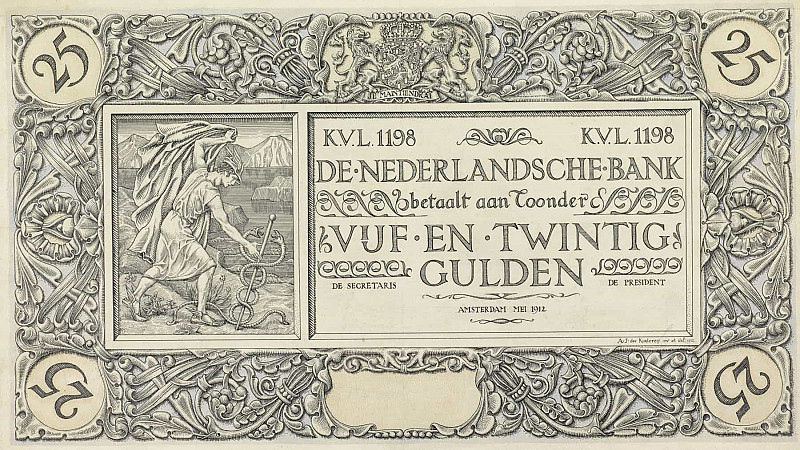 25 25
JE MAINTIENDRAI
K.V.L. 1198 K.V.L. 1198
DE·NEDERLANDSCHE·BANK
betaalt aan Toonder
VIJF·EN·TWINTIG
GULDEN
DE SECRETARIS DE PRESIDENT
AMSTERDAM MEI 1912
25 25